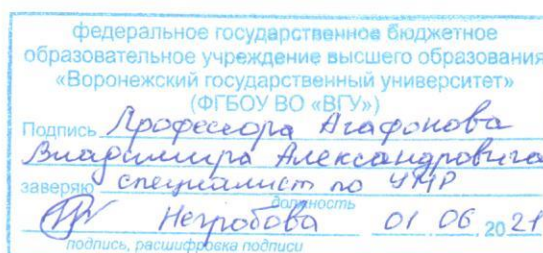 федеральное государственное бюджетное
образовательное учреждение высшего образования
«Воронежский государственный университет»
(ФГБОУ ВО «ВГУ»)
Подпись Профессора Агафонова
Владимира Александровича
заверяю специалист по УМР
должность
Негробова 01 06 2021
подпись, расшифровка подписи